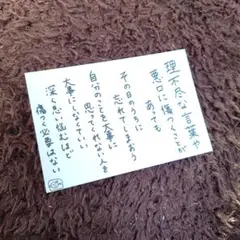 理不尽な言葉や
悪口に傷つくことが
あっても
その日のうちに
忘れてしまおう
自分のことを大事に
思ってくれない人を
大事にしなくていい
深く思い悩むほど
傷つく必要はない